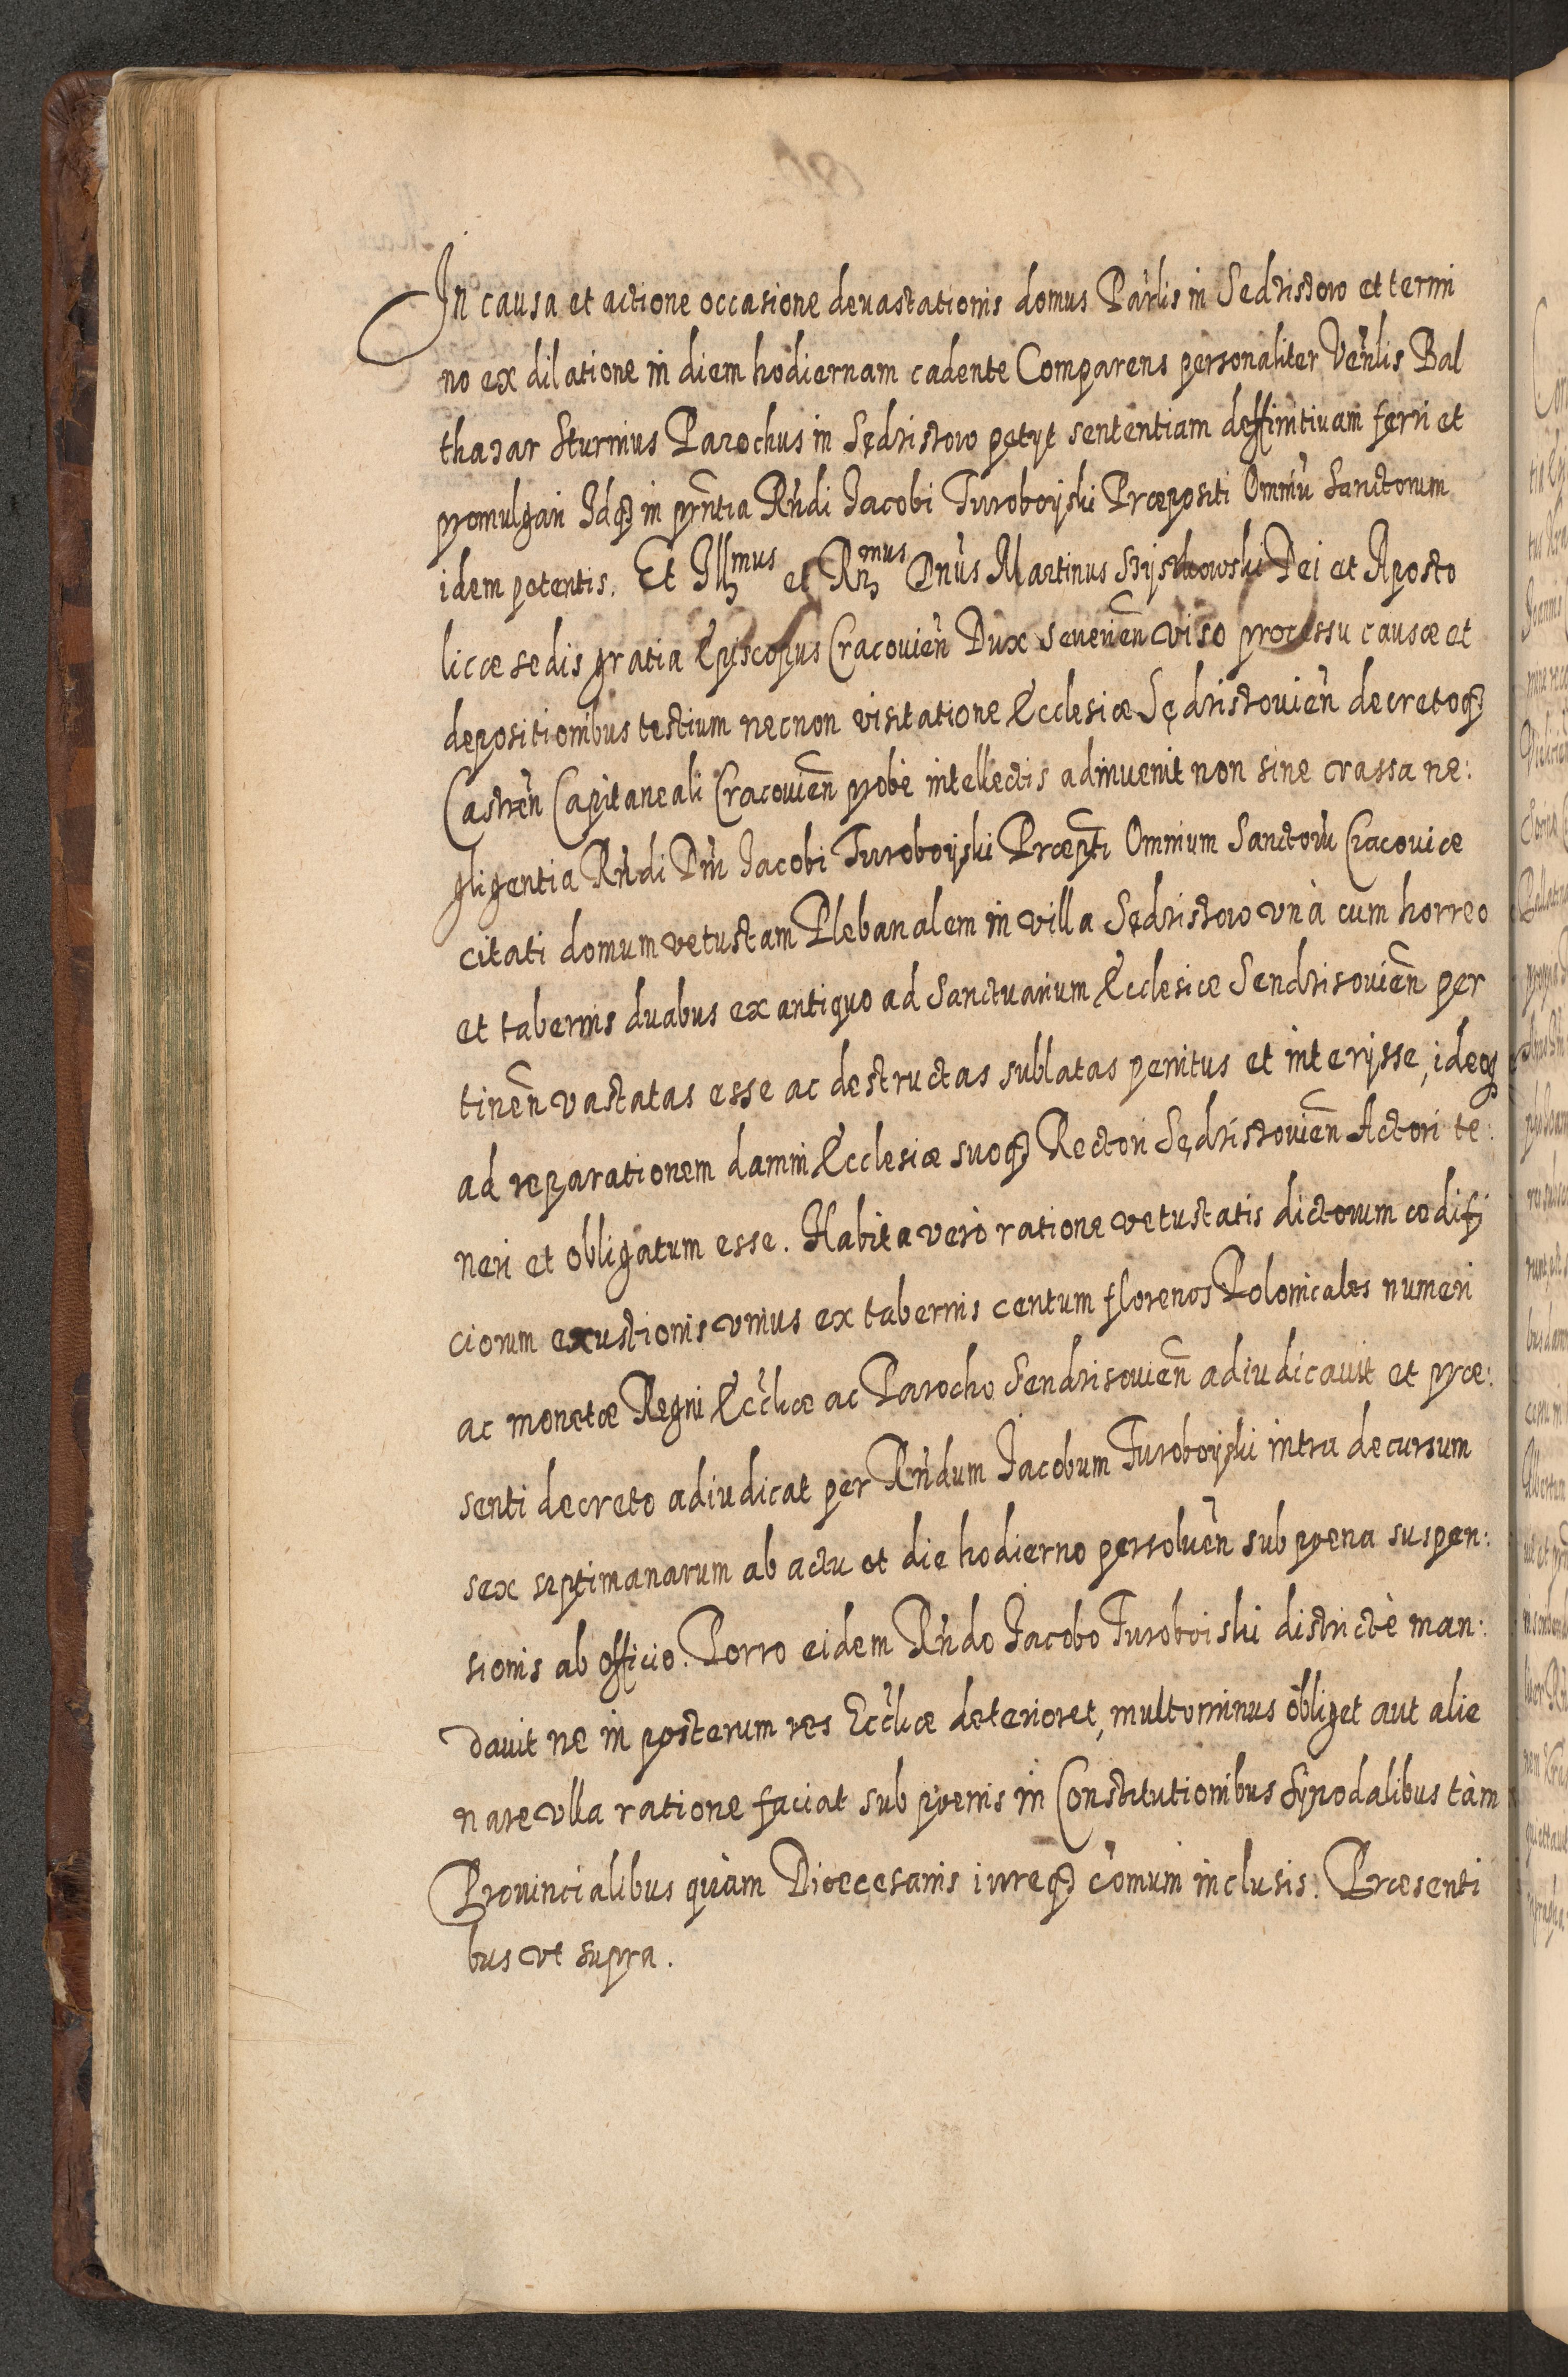 In causa et actione occasione deuastationis domus Parlis in Sedzistow et termi
no ex dilatione in diem hodiernam cadente Comparens personaliter Venlis Bal
thazar Sturmius Parochus in Sędzistow petyt sententiam deffinitiuam ferri et
promulgari Idq3 in pyntia Rndi Jacobi Turoboyski Præpositi Omniu Sanctorum
idem petentis. Et Illmus et Rmus Dnus Martinus Szyszkowski Dei et Aposto
licæ sedis gratia Episcopus Cracouien Dux Seuerien viso processu causæ et
depositionibus testium necnon visitatione Ecclesiæ Sędzistouien decretoq3
Castren Capitaneali Cracouien probè intellectis adinuenit non sine crassa ne:
gligentia Rndi Dni Jacobi Turoboyski Præpti Omnium Sanctoru Cracouiæ
citati domum vetustam Plebanalem in villa Sędzistow vnà cum horreo
et tabernis duabus ex antiquo ad Sanctuarium Ecclesiæ Sendzisouien per
tinen vastatas esse ac destructas sublatas penitus et interysse, ideoq3
ad reparationem damni Ecclesiæ suoq3 Rectori Sędzistouien Actori te:
neri et obligatum esse. Habita verò ratione vetustatis dictorum ædifi
ciorum exustionis vnius ex tabernis centum florenos Polonicales numeri
ac monetæ Regni Ecclæ ac Parocho Sendzisouien adiudicauit et præ:
senti decreto adiudicat per Rndum Jacobum Turoboyski intra decursum
sex septimanarum ab actu et die hodierno persoluen sub pœna suspen:
sionis ab officio. Porro eidem Rndo Jacobo Turoboiski districtè man:
dauit ne in posterum res Ecclæ deterioret, multominus obliget aut alie
nare vlla ratione faciat sub pœnis in Constitutionibus Synodalibus tàm
Prouincialibus quàm Diœcesanis iureq3 comuni inclusis. Præsenti
bus vt supra.